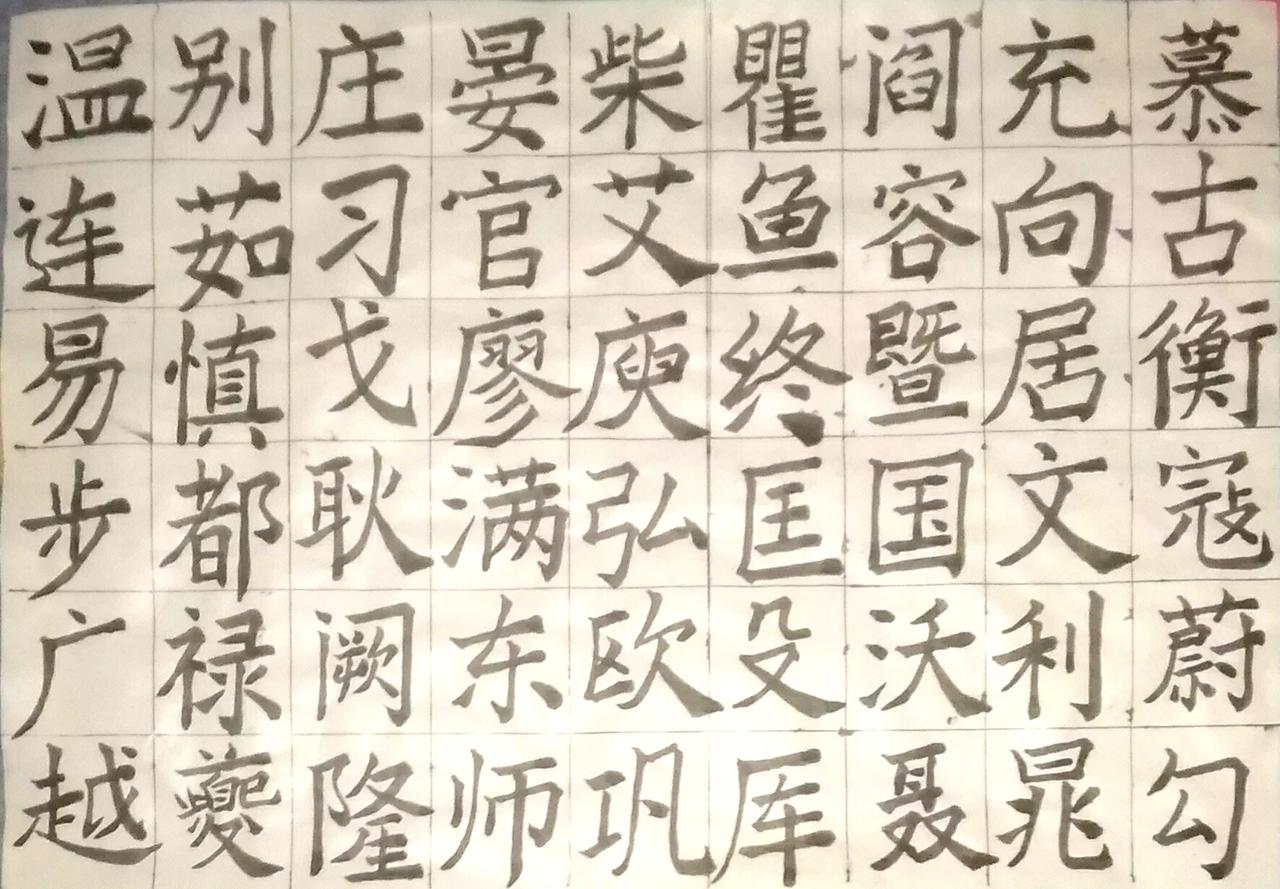 温别庄晏柴瞿阎充慕
连茹习官艾鱼容向古
易慎戈廖庾终暨居衡
步都耿满弘匡国文寇
广禄阙东欧殳沃利蔚
越夔隆师巩厍聂晁勾